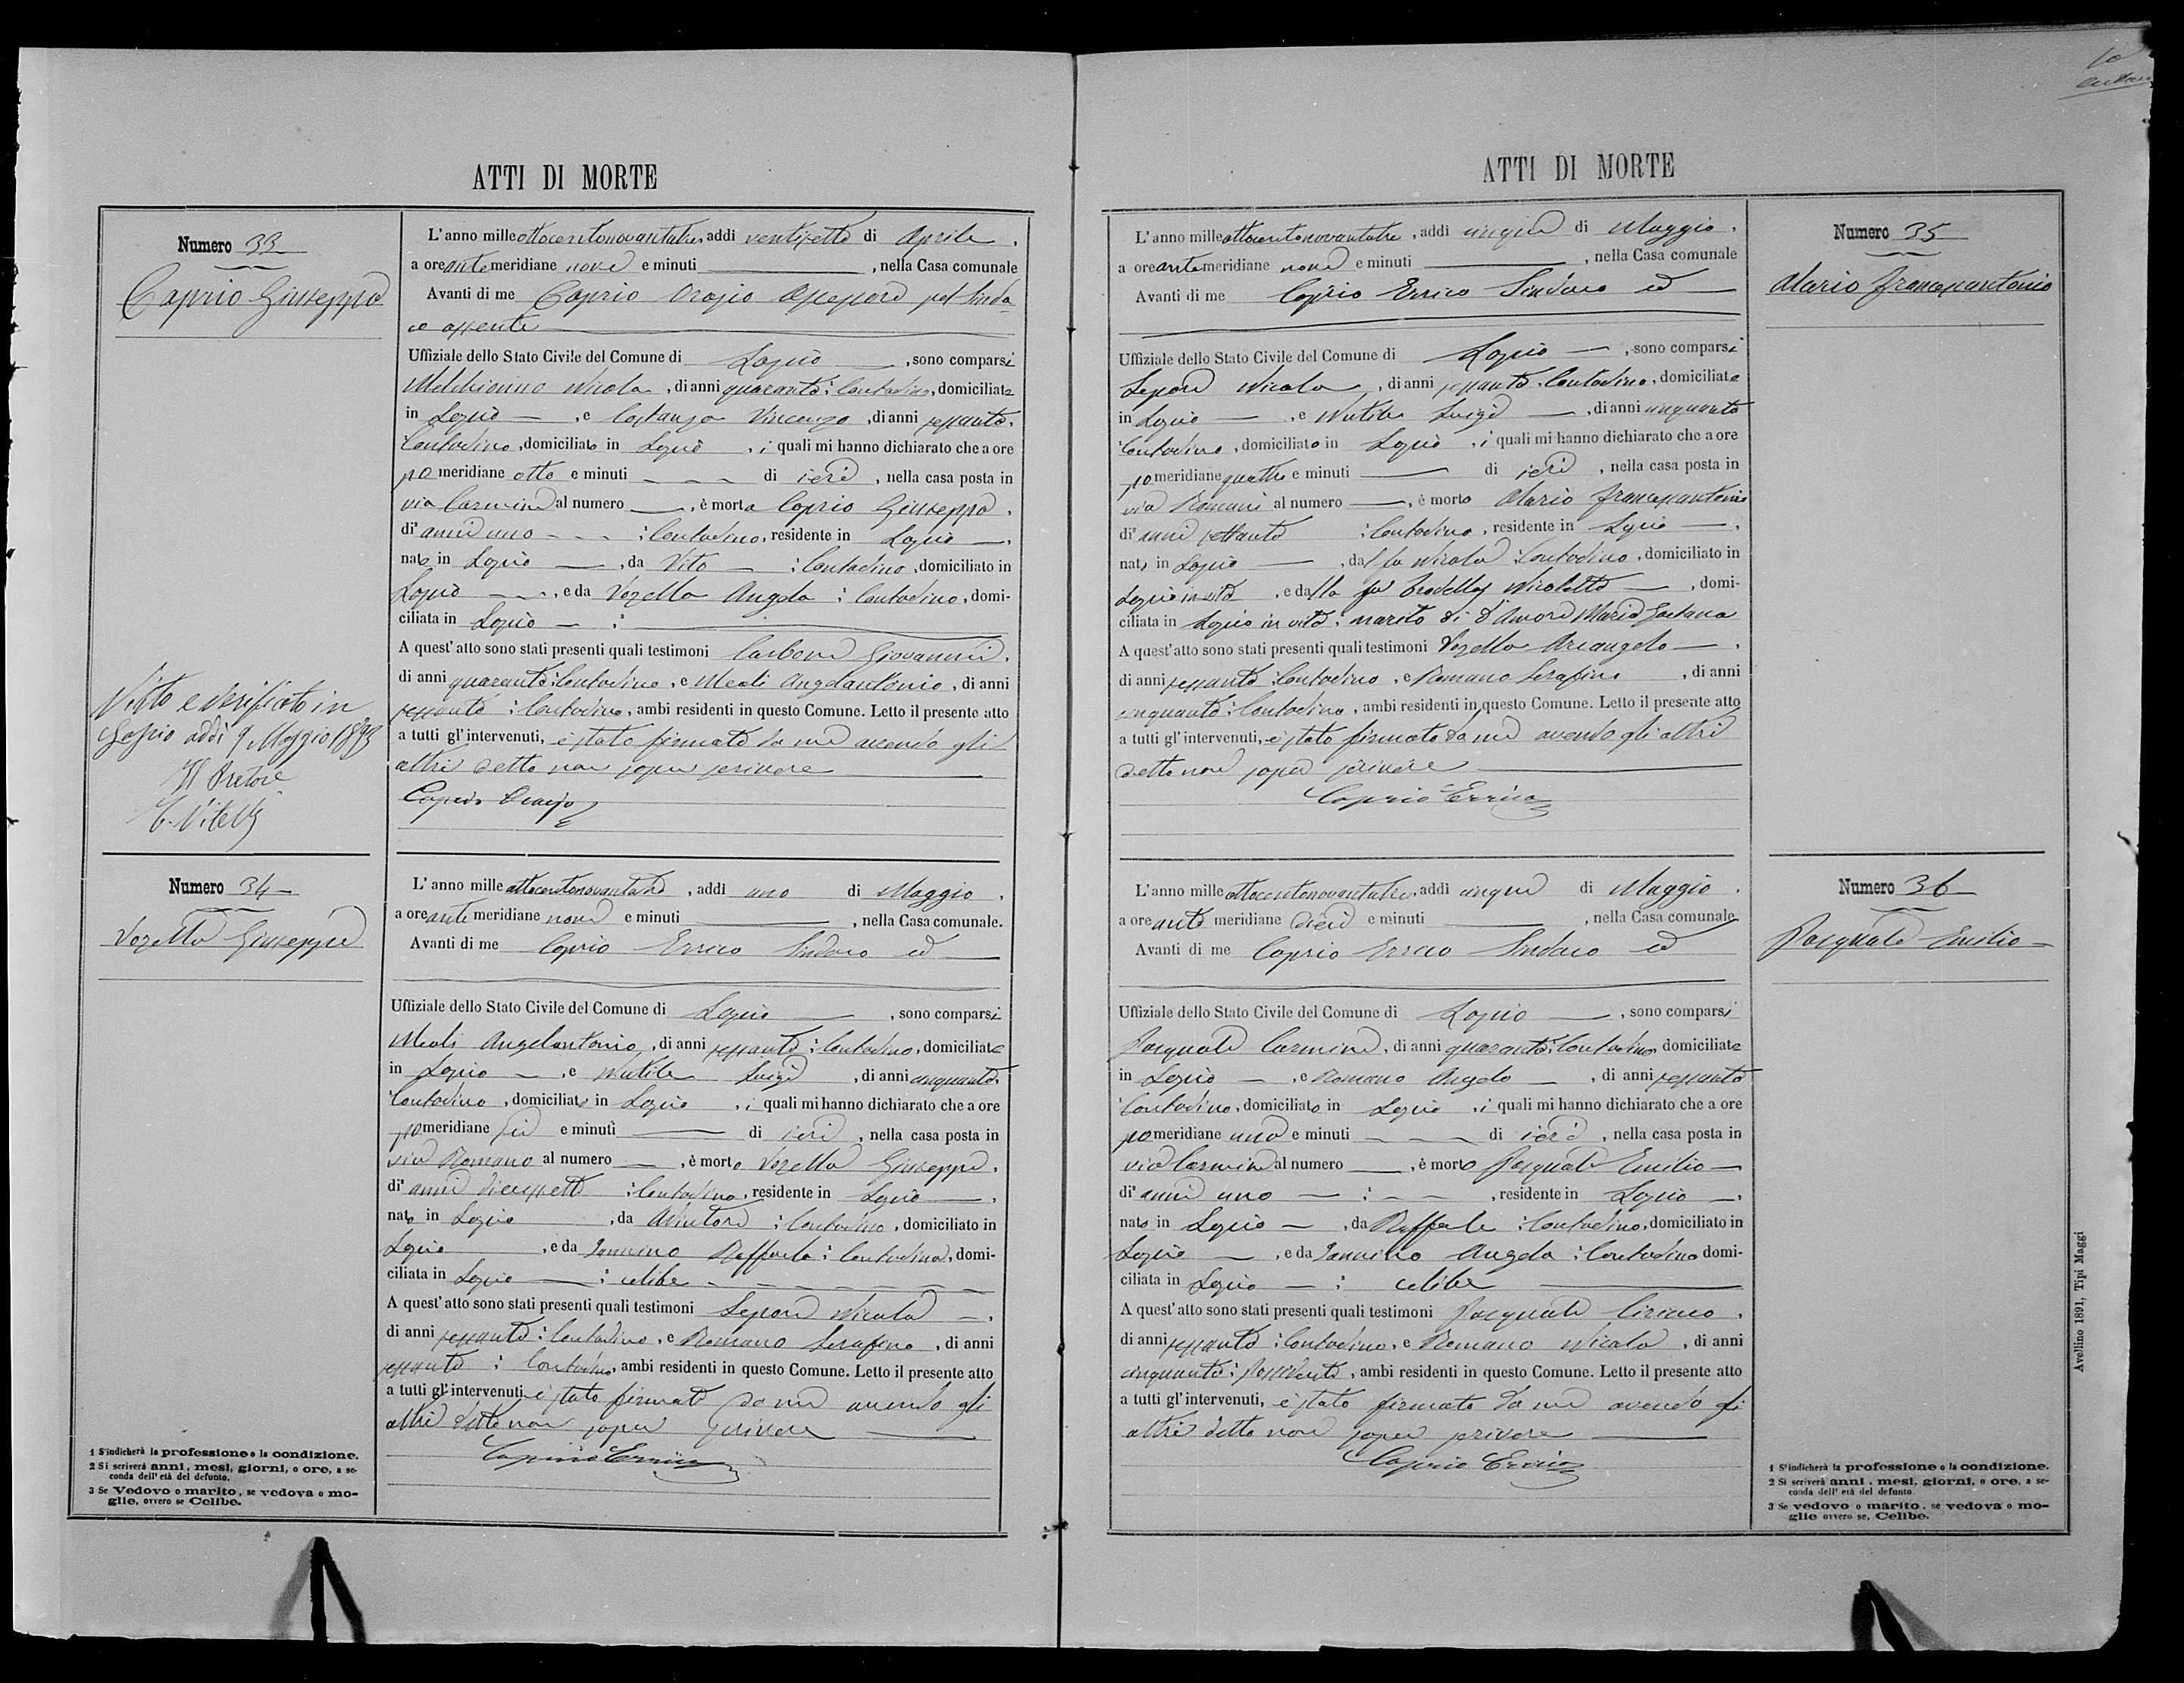 10
ATTI DI MORTE
Numero 33
Caprio Giuseppa
Visto e verificato in
Lapio addì 9 Maggio 1893
Il Pretore
L'anno mille ottocentonovantatre, addì ventisette di Aprile,
a ore antemeridiane nove e minuti , nella Casa comunale
Avanti di me Caprio Orazio Assessore pel Sinda-
co assente
Uffiziale dello Stato Civile del Comune di Lapio , sono comparsi
Melchionno Nicola, di anni quaranta: Contadino, domiciliato
in Lapio , e Costanza Vincenzo, di anni sessanta,
Contadino, domiciliato in Lapio , i quali mi hanno dichiarato che a ore
pomeridiane otto e minuti di ieri , nella casa posta in
via Carmine al numero , è morta Caprio Giuseppa,
di² anni uno : Contadina, residente in Lapio ,
nata in Lapio , da Vito : Contadino, domiciliato in
Lapio , e da Vozella Angela : Contadina, domi-
ciliata in Lapio :
A quest'atto sono stati presenti quali testimoni Carbone Giovanni,
di anni quaranta: Contadino, e Meoli Angelantonio, di anni
sessanta : Contadino, ambi residenti in questo Comune. Letto il presente atto
a tutti gl'intervenuti, è stato firmato da me avendo gli
altri detto non saper scrivere
Caprio Orazio
Numero 34
Vozella Giuseppe
L'anno mille ottocentonovantatre , addì uno di Maggio ,
a ore antemeridiane nove e minuti , nella Casa comunale.
Avanti di me Caprio Errico Sindaco ed
Uffiziale dello Stato Civile del Comune di Lapio , sono comparsi
Meoli Angelantonio, di anni sessanta: Contadino, domiciliato
in Lapio , e Nutile Luigi , di anni cinquanta,
Contadino, domiciliato in Lapio , i quali mi hanno dichiarato che a ore
pomeridiane sei e minuti di ieri , nella casa posta in
via Romano al numero , è morto Vozella Giuseppe,
di² anni diecissette : Contadino, residente in Lapio ,
nato in Lapio , da : Contadino , domiciliato in
Lapio , e da Iannino Raffaela : Contadina, domi-
ciliata in Lapio : celibe
A quest'atto sono stati presenti quali testimoni Lepore Nicola ,
di anni sessanta: Contadino, e Romano Serafino , di anni
sessanta : Contadino, ambi residenti in questo Comune. Letto il presente atto
a tutti gl'intervenuti è stato firmato da me avendo gli
altri detto non saper scrivere
Caprio Errico
1 S'indicherà la professione o la condizione.
2 Si scriverà anni, mesi, giorni, o ore, a se-
conda dell'età del defunto.
3 Se Vedovo o marito, se vedova o mo-
glie, ovvero se Celibe.
ATTI DI MORTE
L'anno mille ottocentonovantatre , addì cinque di Maggio ,
a ore antemeridiane nove e minuti , nella Casa comunale
Avanti di me Caprio Errico Sindaco ed
Uffiziale dello Stato Civile del Comune di Lapio , sono comparsi
Lepore Nicola , di anni sessanta: Contadino, domiciliato
in Lapio , e Nutile Luigi , di anni cinquanta
Contadino, domiciliato in Lapio , i quali mi hanno dichiarato che a ore
pomeridiane quattro e minuti di ieri , nella casa posta in
via Romani al numero , è morto Mario Francescantonio
di² anni settanta : Contadino, residente in Lapio ,
nato in Lapio , dal fu Nicola : Contadino, domiciliato in
Lapio in vita , e dalla fu Nicoletta , domi-
ciliata in Lapio in vita: marito di D'Amore Maria Gaetana
A quest'atto sono stati presenti quali testimoni Vozella Arcangelo ,
di anni sessanta : Contadino, e Romano Serafino , di anni
cinquanta: Contadino, ambi residenti in questo Comune. Letto il presente atto
a tutti gl'intervenuti, è stato firmato da me avendo gli altri
detto non saper scrivere
Caprio Errico
Numero 35
Mario Francescantonio
L'anno mille ottocentonovantatre, addì cinque di Maggio ,
a ore ante meridiane dieci e minuti , nella Casa comunale
Avanti di me Caprio Errico Sindaco ed
Uffiziale dello Stato Civile del Comune di Lapio , sono comparsi
Pasquale Carmine, di anni quaranta: Contadino domiciliato
in Lapio , e Romano Angelo , di anni sessanta
Contadino, domiciliato in Lapio , i quali mi hanno dichiarato che a ore
pomeridiane una e minuti di ieri , nella casa posta in
via Carmine al numero , è morto Pasquale Emilio
di² anni uno : , residente in Lapio ,
nato in Lapio , da Raffaele : Contadino, domiciliato in
Lapio , e da Iannino Angela : Contadina domi-
ciliata in Lapio : celibe
A quest'atto sono stati presenti quali testimoni Pasquale Ciriaco ,
di anni sessanta : Contadino, e Romano Nicola , di anni
cinquanta : Possidente , ambi residenti in questo Comune. Letto il presente atto
a tutti gl'intervenuti, è stato firmato da me avendo gli
altri detto non saper scrivere
Caprio Errico
Numero 36
Pasquale Emilio
1 S'indicherà la professione o la condizione.
2 Si scriverà anni, mesi, giorni, o ore, a se-
conda dell'età del defunto
3 Se vedovo o marito, se vedova o mo-
glie ovvero se, Celibe.
Avellino 1891, Tipi Maggi